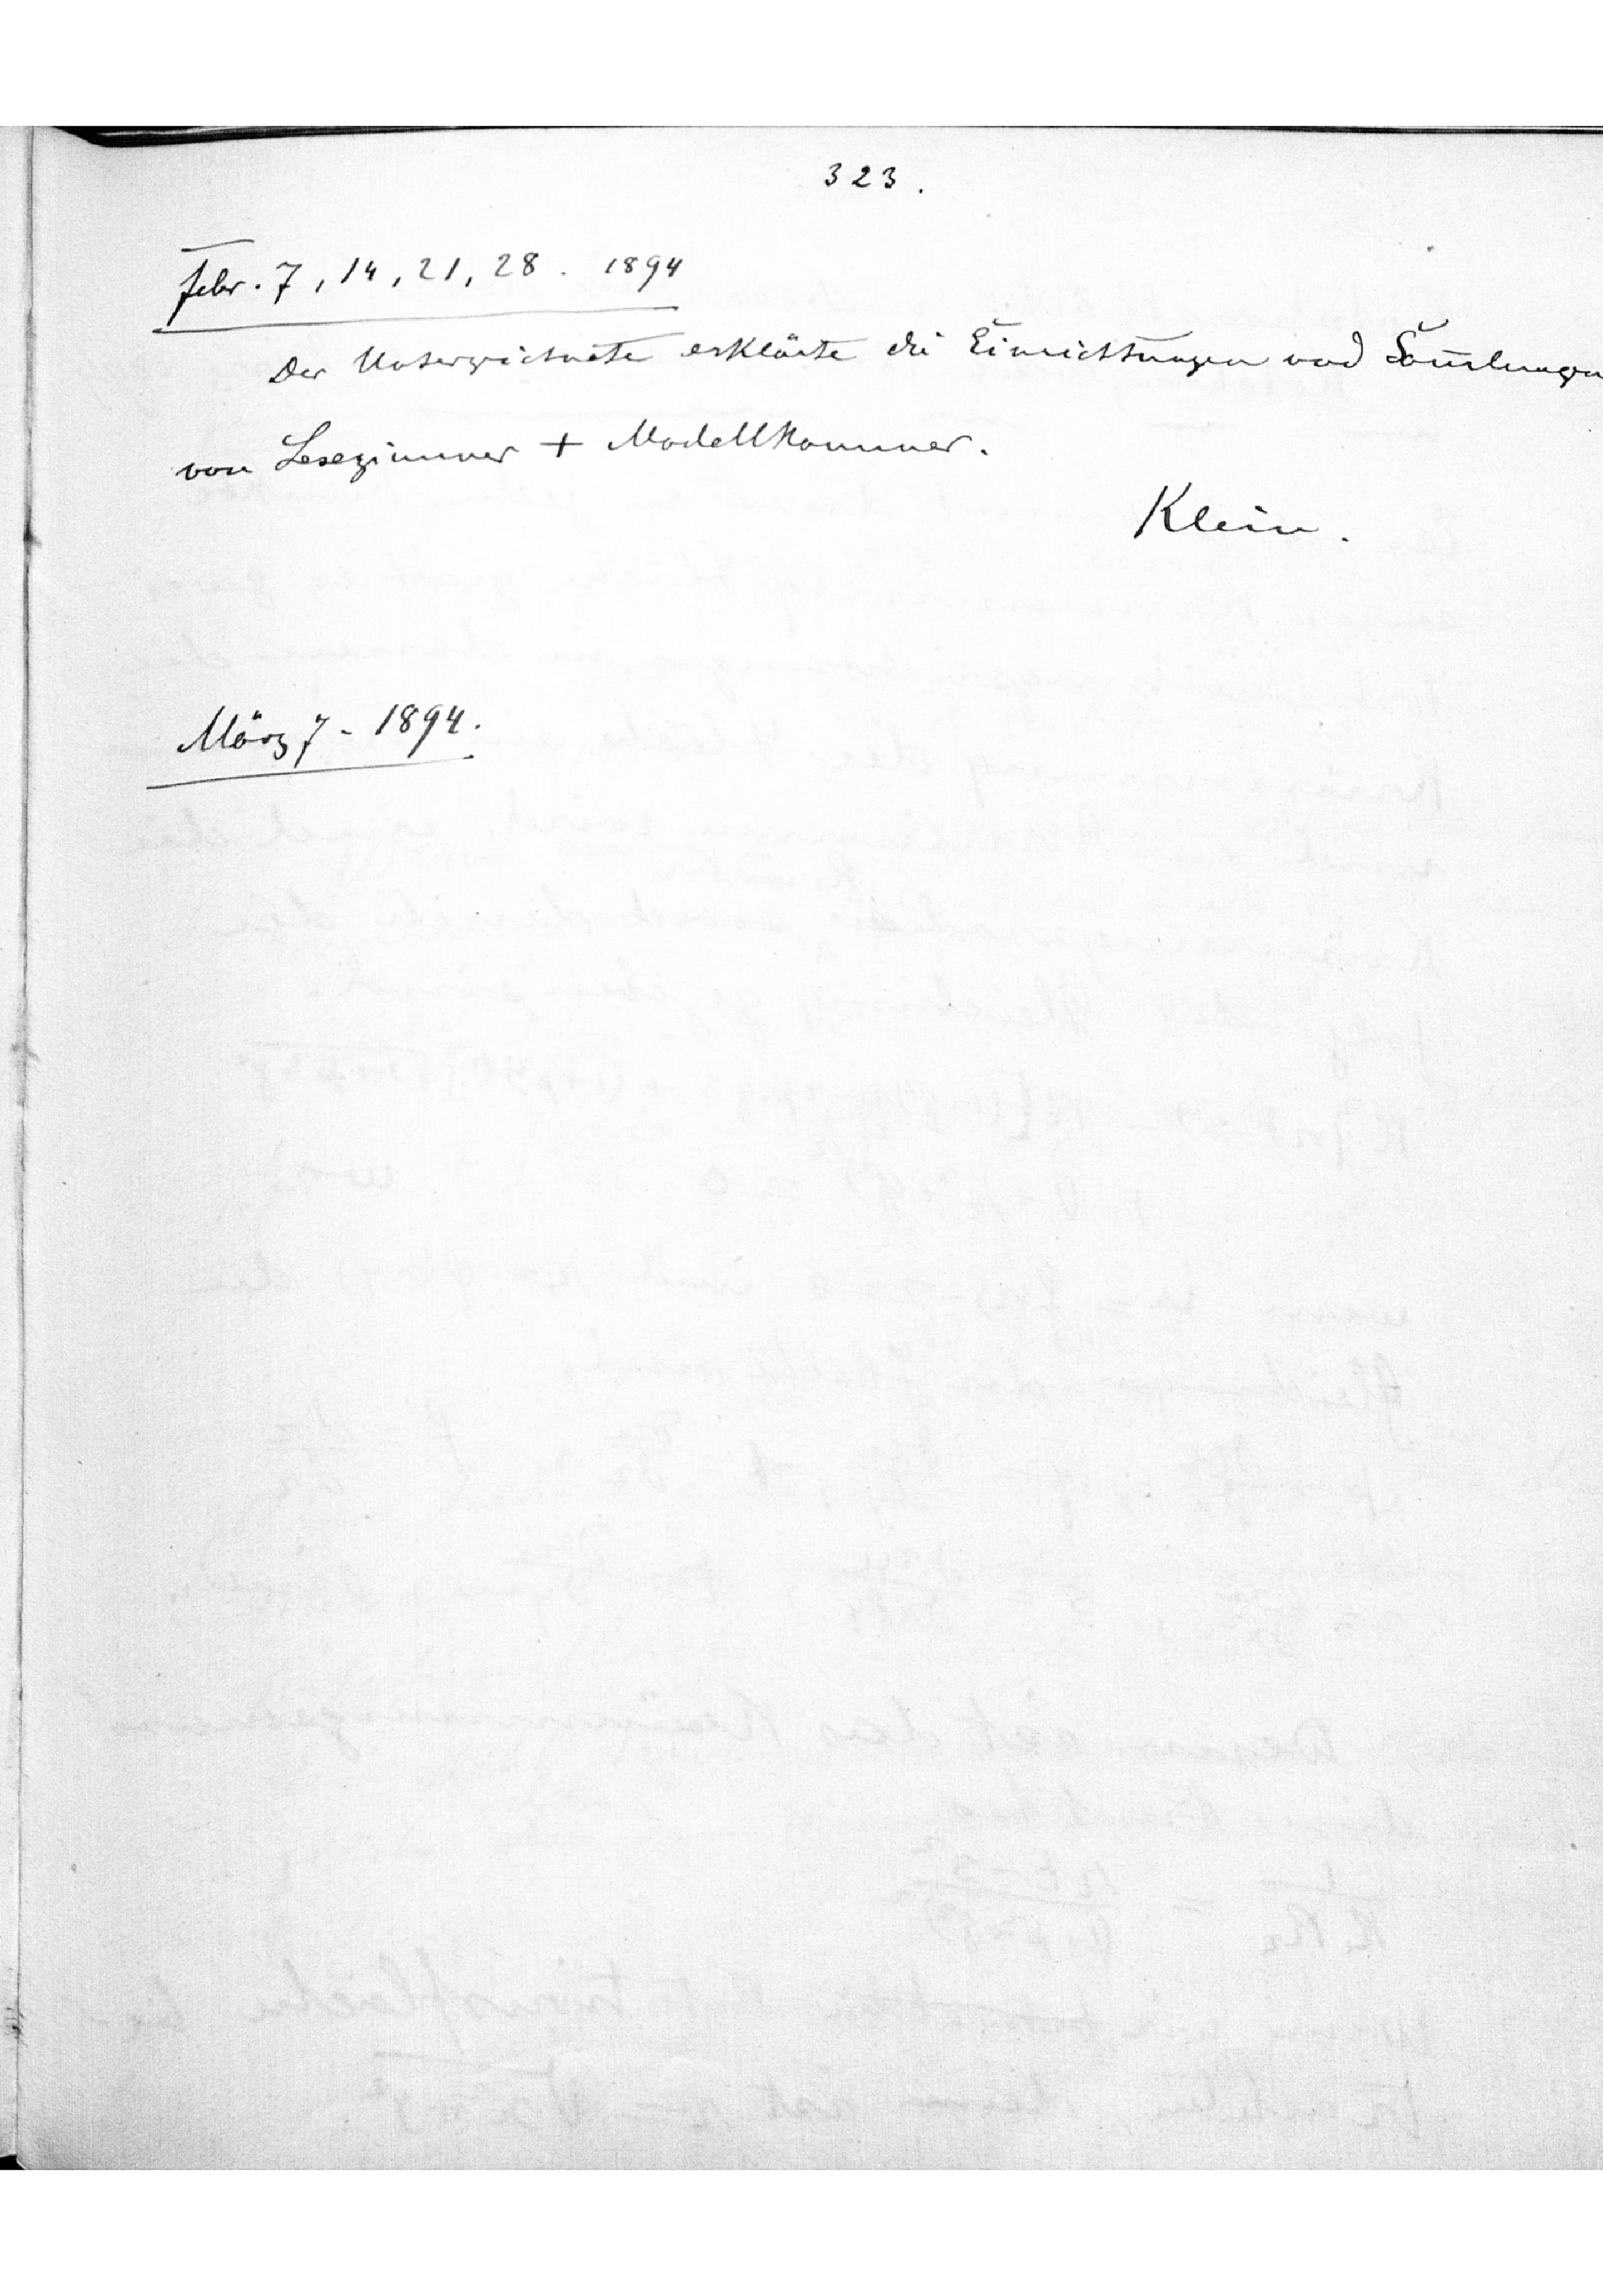 323.
Febr. 7, 14, 21, 28. 1894
Der Unterzeichnete erklärte die Einrichtungen und Sam̄lungen
von Lesezimmer + Modellkammer.
Klein.
März 7 - 1894.